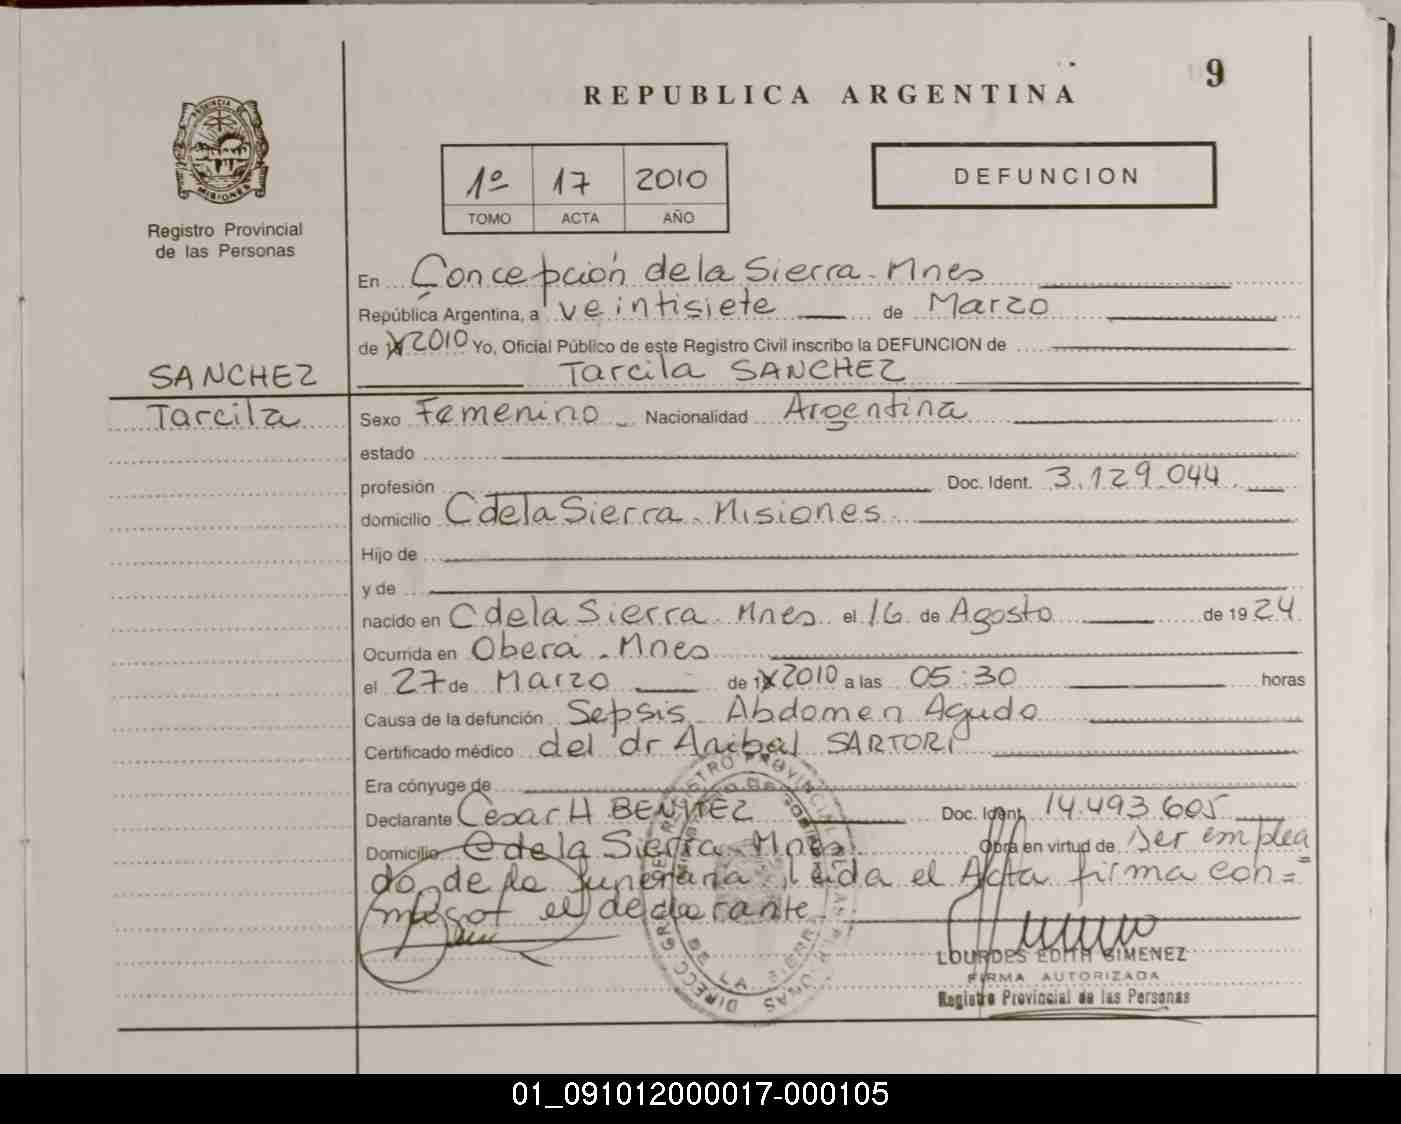 9
REPUBLICA ARGENTINA
1º 17 2010
TOMO ACTA AÑO
DEFUNCION
PROVINCIA DE
MISIONES
Registro Provincial
de las Personas
SANCHEZ
Tarcila
En Concepción de la Sierra - Mnes
República Argentina, a veintisiete de Marzo
de 2010 Yo, Oficial Público de este Registro Civil inscribo la DEFUNCION de
Tarcila SANCHEZ
Sexo Femenino Nacionalidad Argentina
estado
profesión Doc. Ident. 3.129.044
domicilio C de la Sierra - Misiones
Hijo de
y de
nacido en C de la Sierra - Mnes el 16 de Agosto de 1924
Ocurrida en Oberá - Mnes
el 27 de Marzo de 2010 a las 05:30 horas
Causa de la defunción Sepsis - Abdomen Agudo
Certificado médico del dr Anibal SARTORI
Era cónyuge de
Declarante Cesar H BENITEZ Doc. Ident. 14.493.605
Domicilio C de la Sierra - Mnes Obra en virtud de Ser emplea
do de la funeraria leida el Acta firma con=
migo el declarante
LOURDES EDITH GIMENEZ
FIRMA AUTORIZADA
Registro Provincial de las Personas
01_091012000017-000105